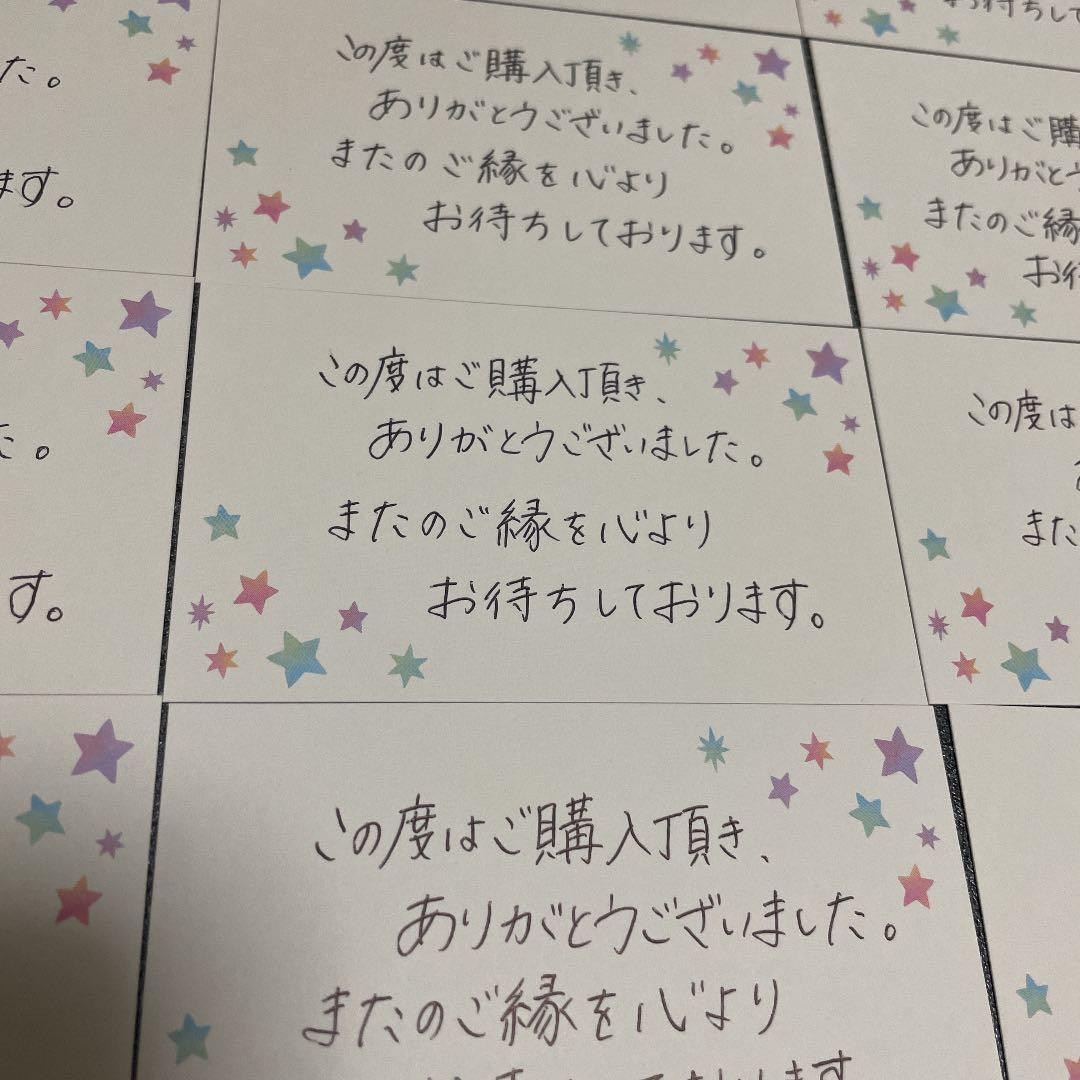 た。
ます。
この度はご購入頂き、
ありがとうございました。
またのご縁を心より
お待ちしております。
お待ちして
この度はご購
ありがとう
またのご縁
お待
た。
す。
この度はご購入頂き、
ありがとうございました。
またのご縁を心より
お待ちしております。
この度は
また
この度はご購入頂き、
ありがとうございました。
またのご縁を心より